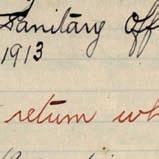 Sanitary Off
1913
return wh